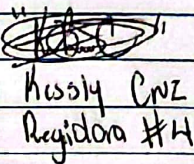 Kessly Cruz
Regidora #4